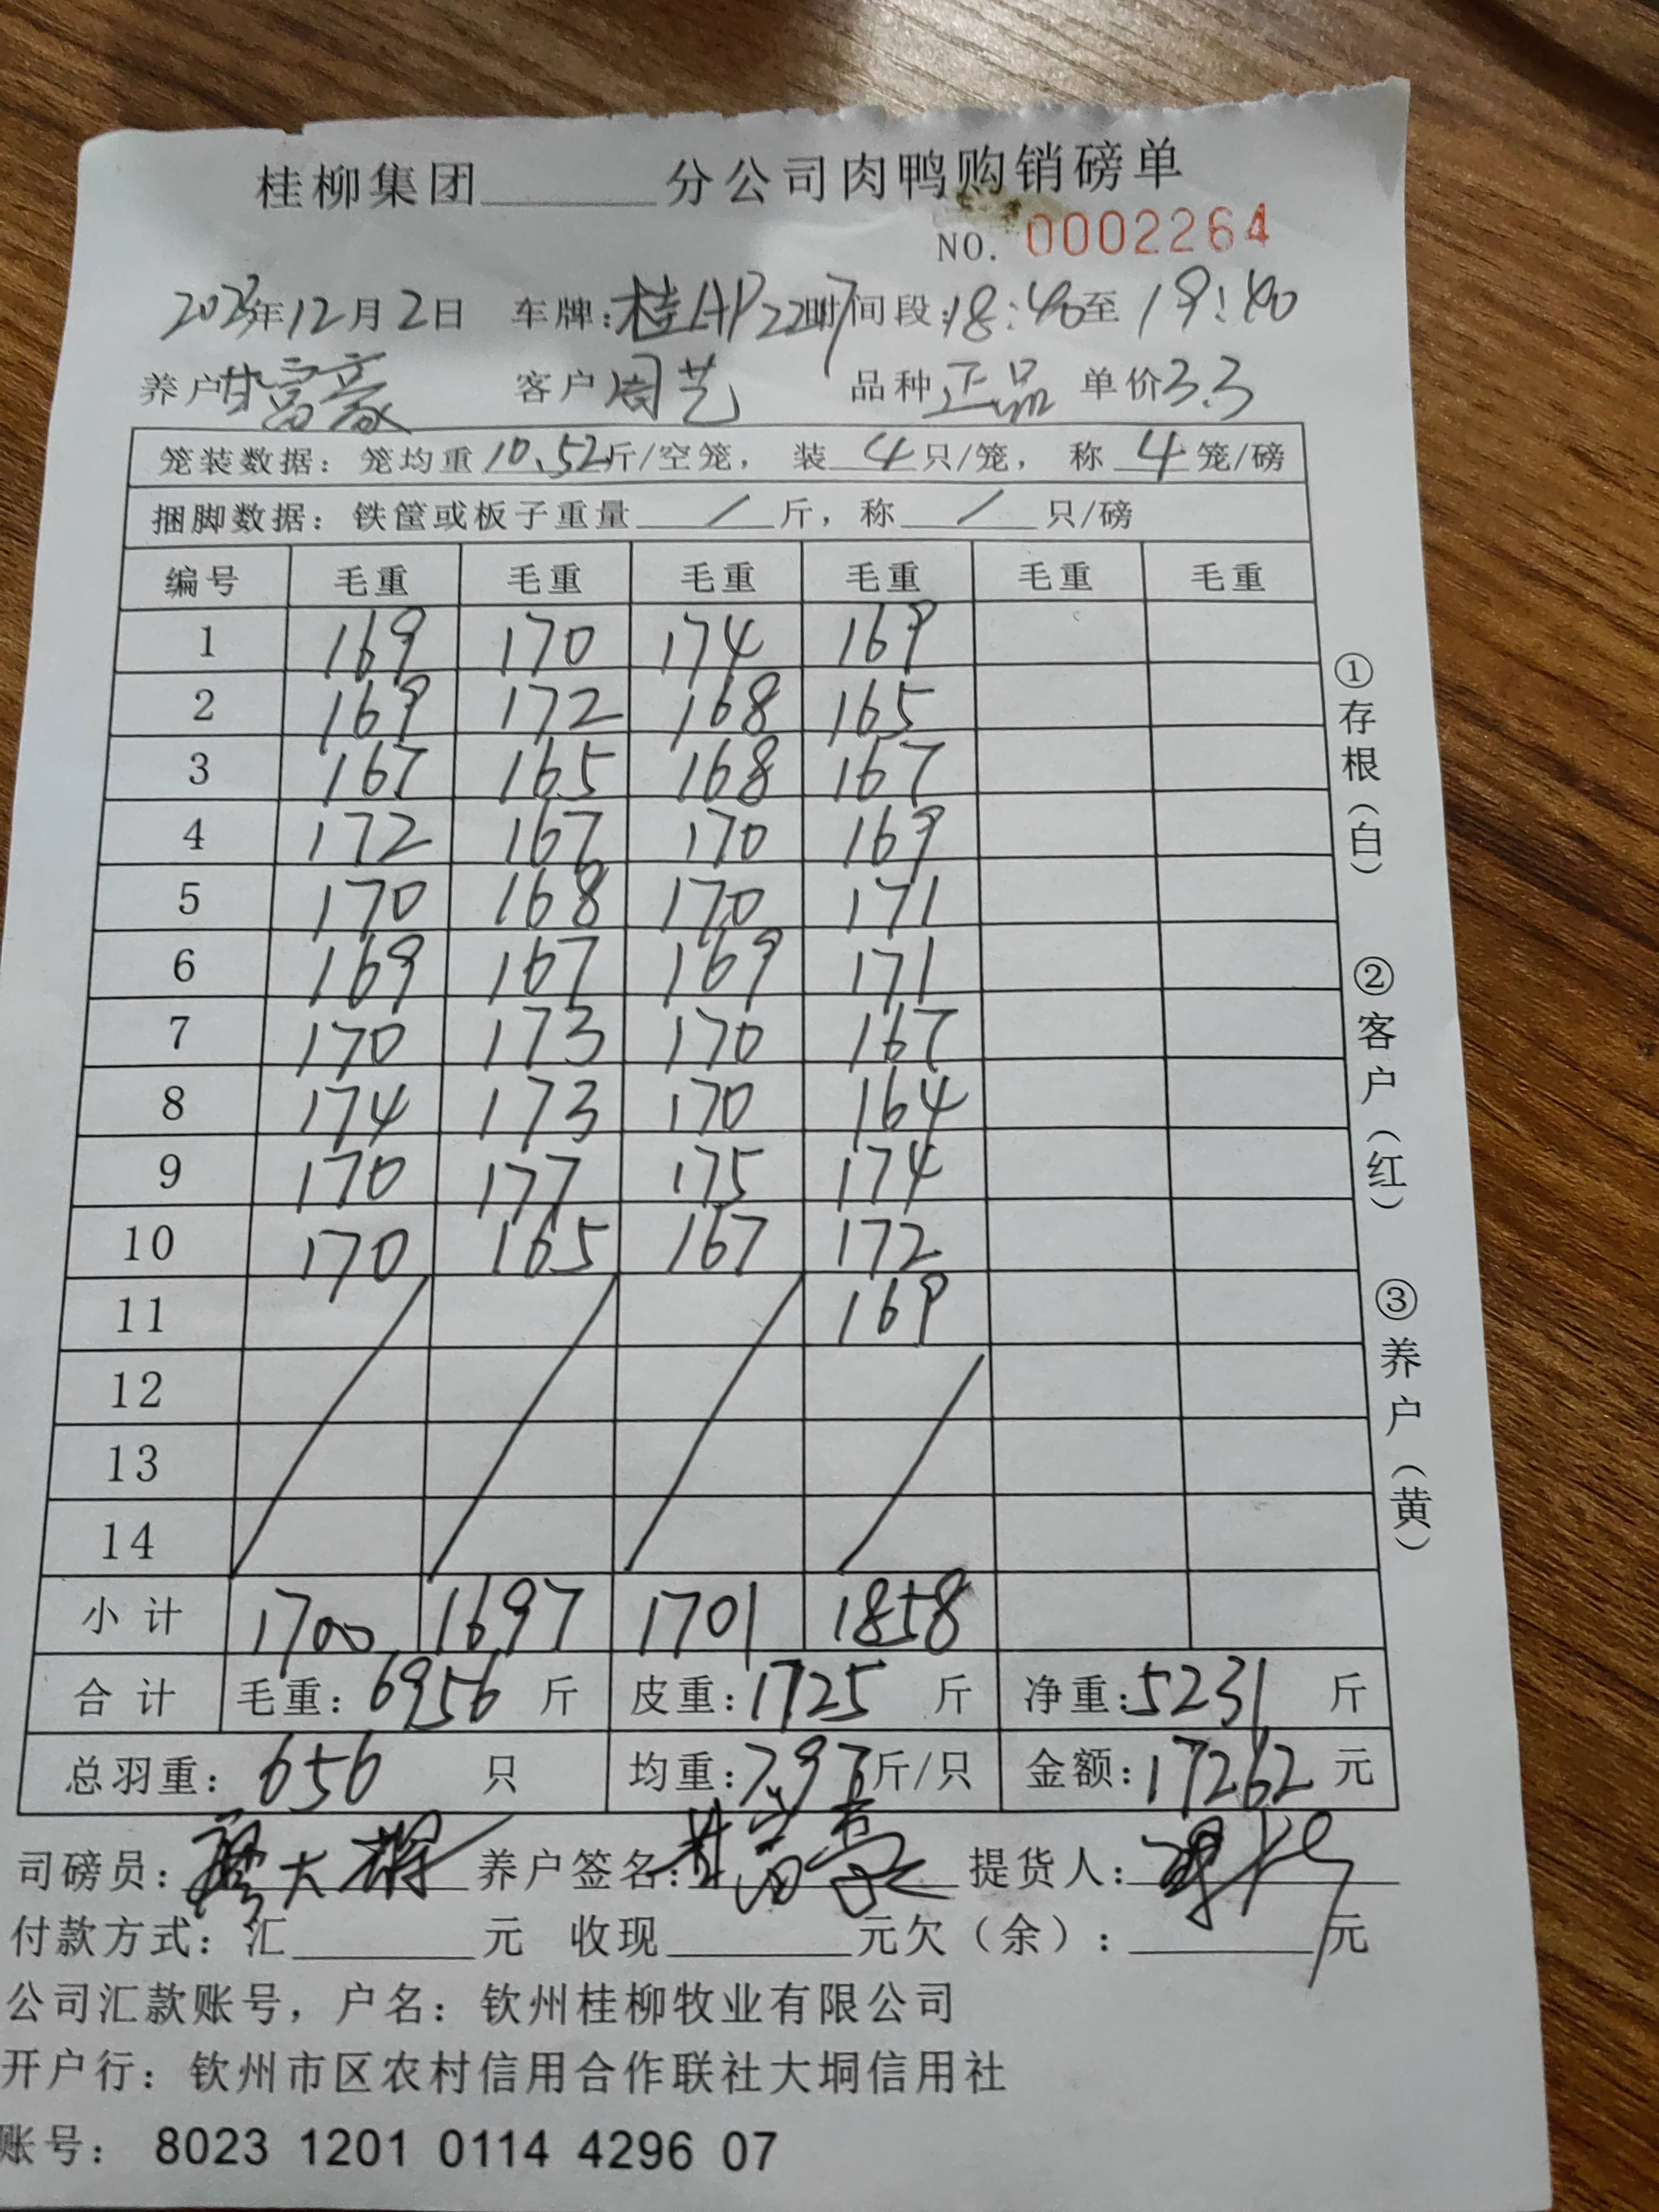 桂柳集团______分公司肉鸭购销磅单
NO. 0002264
2023年12月2日 车牌:桂AP2207 时间段:18:40至19:40
养户 甘富豪 客户 周艺 品种 正品 单价3.3
笼装数据：笼均重10.52斤/空笼，装 4 只/笼，称 4 笼/磅
捆脚数据：铁筐或板子重量 / 斤，称 / 只/磅
编号 毛重 毛重 毛重 毛重 毛重 毛重
1 169 170 174 169
2 169 172 168 165
3 167 165 168 167
4 172 167 170 169
5 170 168 170 171
6 169 167 169 171
7 170 173 170 167
8 174 173 170 164
9 170 177 175 174
10 170 165 167 172
11 169
12
13
14
小计 1700 1697 1701 1858
合计 毛重：6956 斤 皮重：1725 斤 净重：5231 斤
总羽重：656 只 均重：7.97斤/只 金额：17262 元
司磅员： 养户签名： 提货人：
付款方式：汇______元 收现______元欠（余）：______元
公司汇款账号，户名：钦州桂柳牧业有限公司
开户行：钦州市区农村信用合作联社大垌信用社
账号： 8023 1201 0114 4296 07
①存根（白） ②客户（红） ③养户（黄）